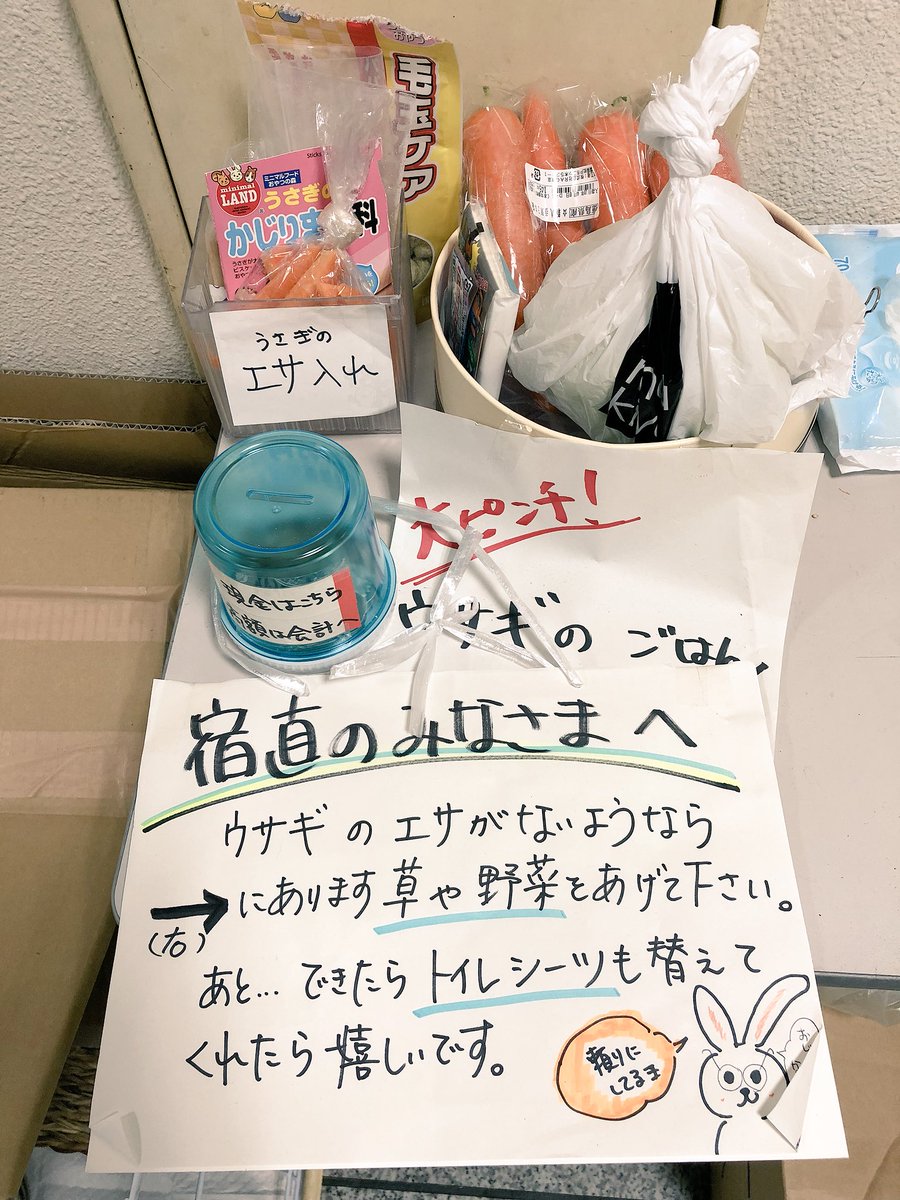 毛玉ケア
おやつ
minimal
LAND
ミニマルフード
おやつの森
うさぎの
かじりま
科
うさぎの
エサ入れ
現金はこちら
額は会計へ
大ピンチ!
ウサギの ごはん
宿直のみなさまへ
ウサギのエサがないようなら
→にあります草や野菜をあげて下さい。
(右)
あと… できたらトイレシーツも替えて
くれたら嬉しいです。
頼りに
してるヨ